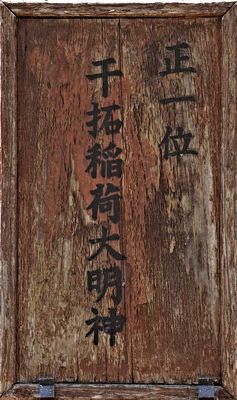 正一位
干拓稲荷大明神